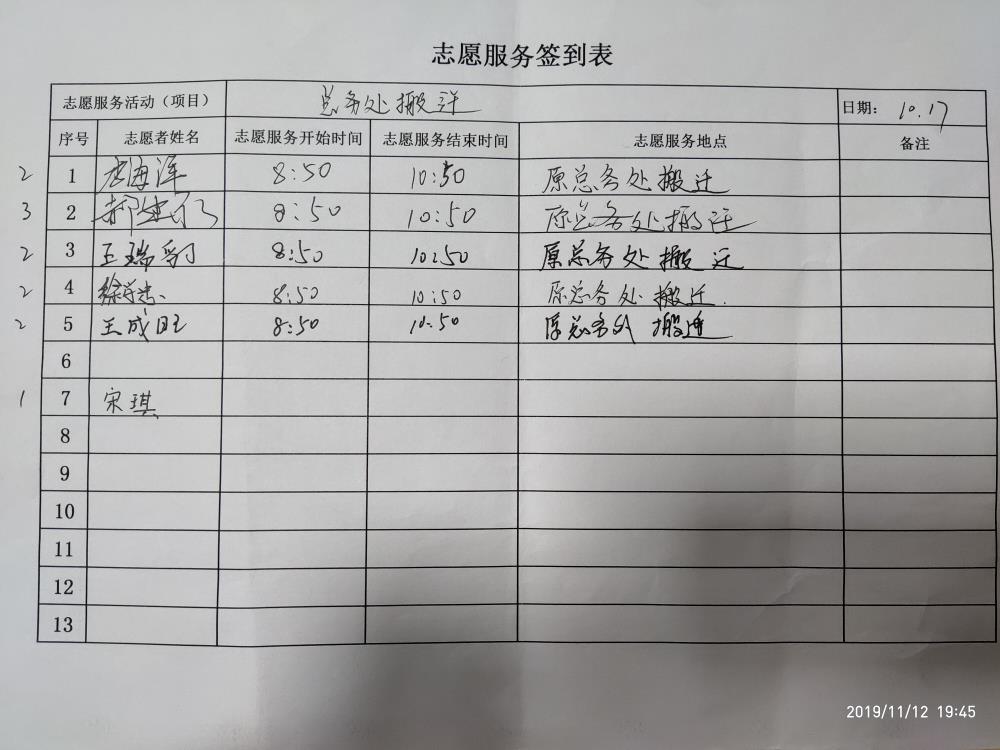 志愿服务签到表
志愿服务活动（项目） 总务处搬迁 日期： 10.17
序号 志愿者姓名 志愿服务开始时间 志愿服务结束时间 志愿服务地点 备注
2 1 海洋 8:50 10:50 原总务处搬迁
3 2 8:50 10:50 原总务处搬迁
2 3 王瑞 8:50 10:50 原总务处搬迁
2 4 徐学忠 8:50 10:50 原总务处搬迁.
2 5 王成旺 8:50 10:50 原总务处 搬迁
6
1 7 宋琪
8
9
10
11
12
13
2019/11/12 19:45